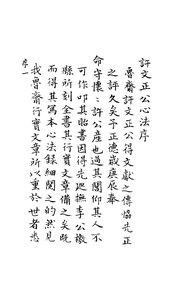 許文正公心法序
魯齋許文正公得文獻之傳協先正
之評久矣予正德戊辰奉
命守懷懷許公產也過其閭仰其人不
可作叩其貽書因得先迎撫李公旅
縣所刻全書其行實文章備之矣既
而得其寓本心法錄細閱之的然見
我魯齋行實文章所以重於世者悉
序一